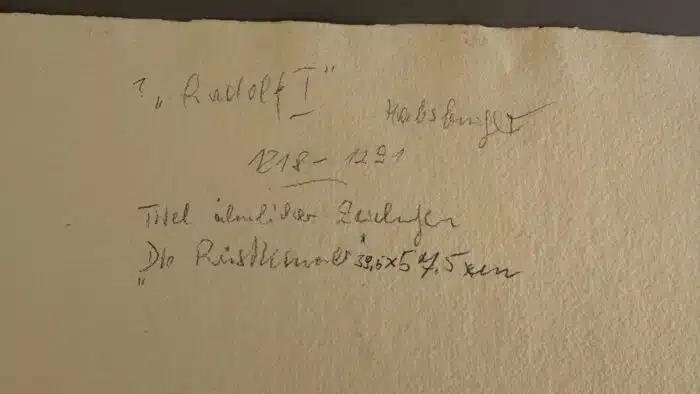 ? „Rudolf I“
Habsburger
1218 – 1291
Titel ähnlicher Zeichnungen
39,5 x 57,5 cm